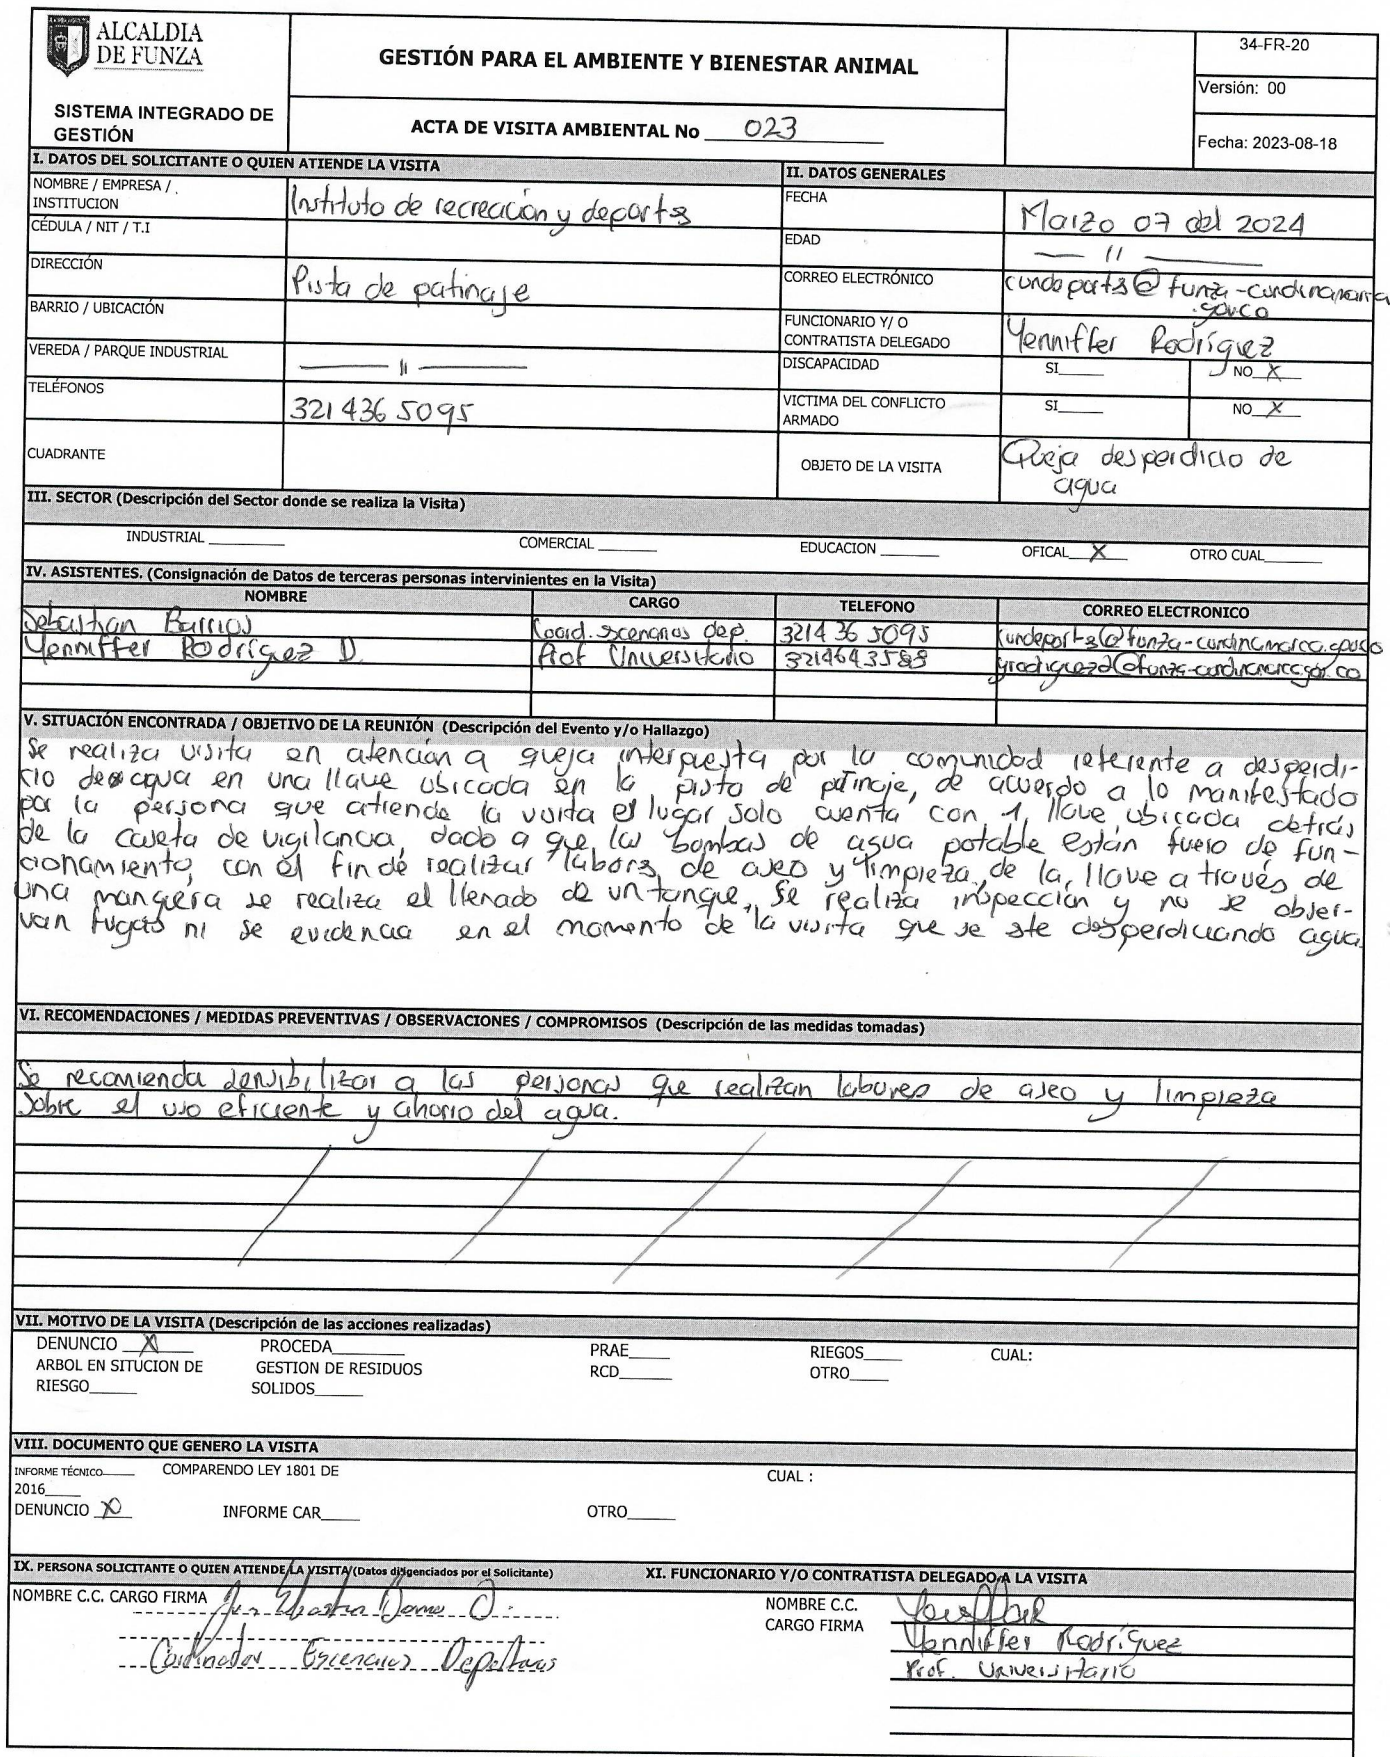 ALCALDIA
DE FUNZA
SISTEMA INTEGRADO DE
GESTIÓN
GESTIÓN PARA EL AMBIENTE Y BIENESTAR ANIMAL
ACTA DE VISITA AMBIENTAL No 023
34-FR-20
Versión: 00
Fecha: 2023-08-18
I. DATOS DEL SOLICITANTE O QUIEN ATIENDE LA VISITA
NOMBRE / EMPRESA /
INSTITUCION
Instituto de recreación y deportes
CÉDULA / NIT / T.I
DIRECCIÓN
Pista de patinaje
BARRIO / UBICACIÓN
VEREDA / PARQUE INDUSTRIAL
— 11 —
TELÉFONOS
321 436 5095
CUADRANTE
II. DATOS GENERALES
FECHA
Marzo 07 del 2024
EDAD
— 11 —
CORREO ELECTRÓNICO
cundeports@funza-cundinamarca
.gov.co
FUNCIONARIO Y/ O
CONTRATISTA DELEGADO
Yenniffer Rodríguez
DISCAPACIDAD SI____ NO X
VICTIMA DEL CONFLICTO
ARMADO
SI____ NO X
OBJETO DE LA VISITA
Queja desperdicio de
agua
III. SECTOR (Descripción del Sector donde se realiza la Visita)
INDUSTRIAL ____ COMERCIAL ____ EDUCACION ____ OFICAL X OTRO CUAL____
IV. ASISTENTES. (Consignación de Datos de terceras personas intervinientes en la Visita)
NOMBRE CARGO TELEFONO CORREO ELECTRONICO
Sebastian Barrios Coord. scenarios dep. 3214 36 5095 cundeports@funza-cundinamarca.gov.co
Yenniffer Rodríguez D. Prof Universitario 3214643588 yrodriguezd@funza-cundinamarca.gov.co
V. SITUACIÓN ENCONTRADA / OBJETIVO DE LA REUNIÓN (Descripción del Evento y/o Hallazgo)
Se realiza visita en atención a queja interpuesta por la comunidad referente a desperdi-
cio de agua en una llave ubicada en la pista de patinaje, de acuerdo a lo manifestado
por la persona que atiende la visita el lugar solo cuenta con 1 llave ubicada detrás
de la caseta de vigilancia, dado a que las bombas de agua potable están fuera de fun-
cionamiento, con el fin de realizar labores de aseo y limpieza, de la llave a través de
una manguera se realiza el llenado de un tanque, se realiza inspección y no se obser-
van fugas ni se evidencia en el momento de la visita que se este desperdiciando agua.
VI. RECOMENDACIONES / MEDIDAS PREVENTIVAS / OBSERVACIONES / COMPROMISOS (Descripción de las medidas tomadas)
Se recomienda sensibilizar a las personas que realizan labores de aseo y limpieza
sobre el uso eficiente y ahorro del agua.
VII. MOTIVO DE LA VISITA (Descripción de las acciones realizadas)
DENUNCIO X PROCEDA____ PRAE____ RIEGOS____ CUAL:
ARBOL EN SITUCION DE GESTION DE RESIDUOS RCD____ OTRO____
RIESGO____ SOLIDOS____
VIII. DOCUMENTO QUE GENERO LA VISITA
INFORME TÉCNICO____ COMPARENDO LEY 1801 DE CUAL :
2016____
DENUNCIO X INFORME CAR____ OTRO____
IX. PERSONA SOLICITANTE O QUIEN ATIENDE LA VISITA (Datos diligenciados por el Solicitante)
NOMBRE C.C. CARGO FIRMA
Coordinador Escenarios Deportivos
XI. FUNCIONARIO Y/O CONTRATISTA DELEGADO A LA VISITA
NOMBRE C.C.
CARGO FIRMA
Yenniffer Rodríguez
Prof. Universitario